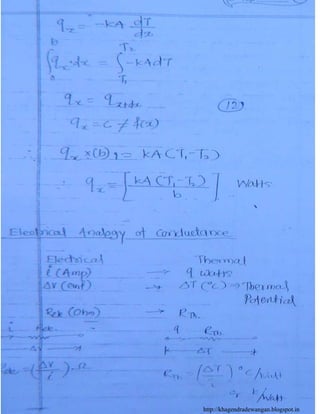 qx = -kA dT/dx
∫₀ᵇ qx·dx = ∫_T₁^T₂ -kAdT
qx = qx+dx
(12)
qx = C ≠ f(x)
∴ qx ×(b) = kA(T₁-T₂)
∴ qx = [kA(T₁-T₂)/b] Watts
Electrical Analogy of Conductance
Electrical Thermal
i (Amp) → q watts
ΔV (emf) → ΔT (°C) → Thermal
Potential
Rele (Ohm) → RTh.
i Rele. q RTh.
ΔV ΔT
Rele = (ΔV/i) Ω RTh = (ΔT/q) °C/Watt
or K/Watt
http://khagendradewangan.blogspot.in